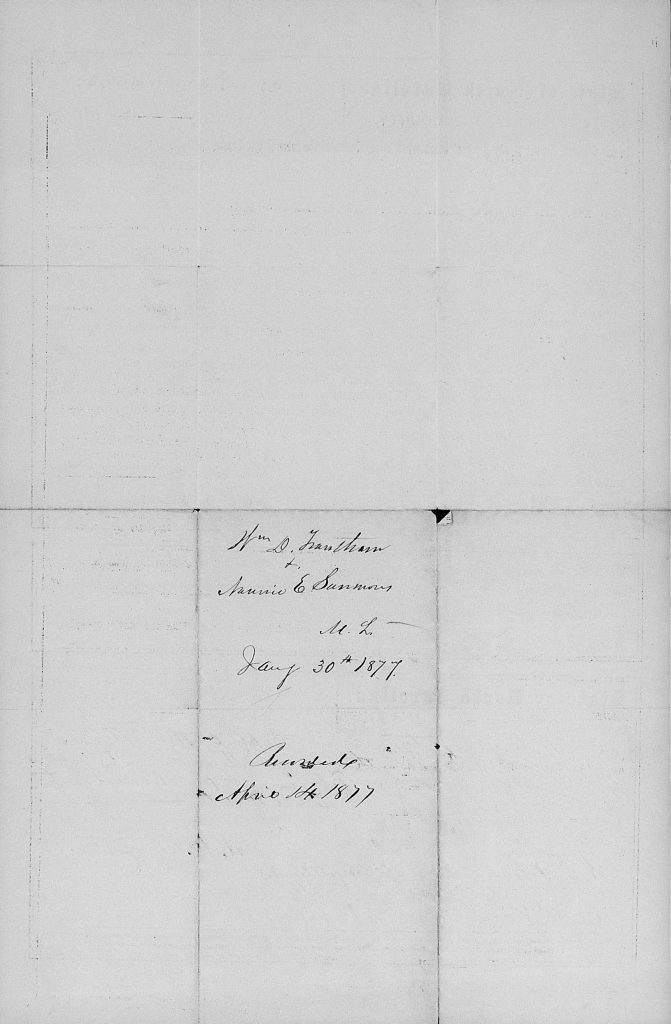 Wm D. Trantham
&
Nannie E Sammons
M. L.
Jany 30th 1877.
Recorded
April 14 1877